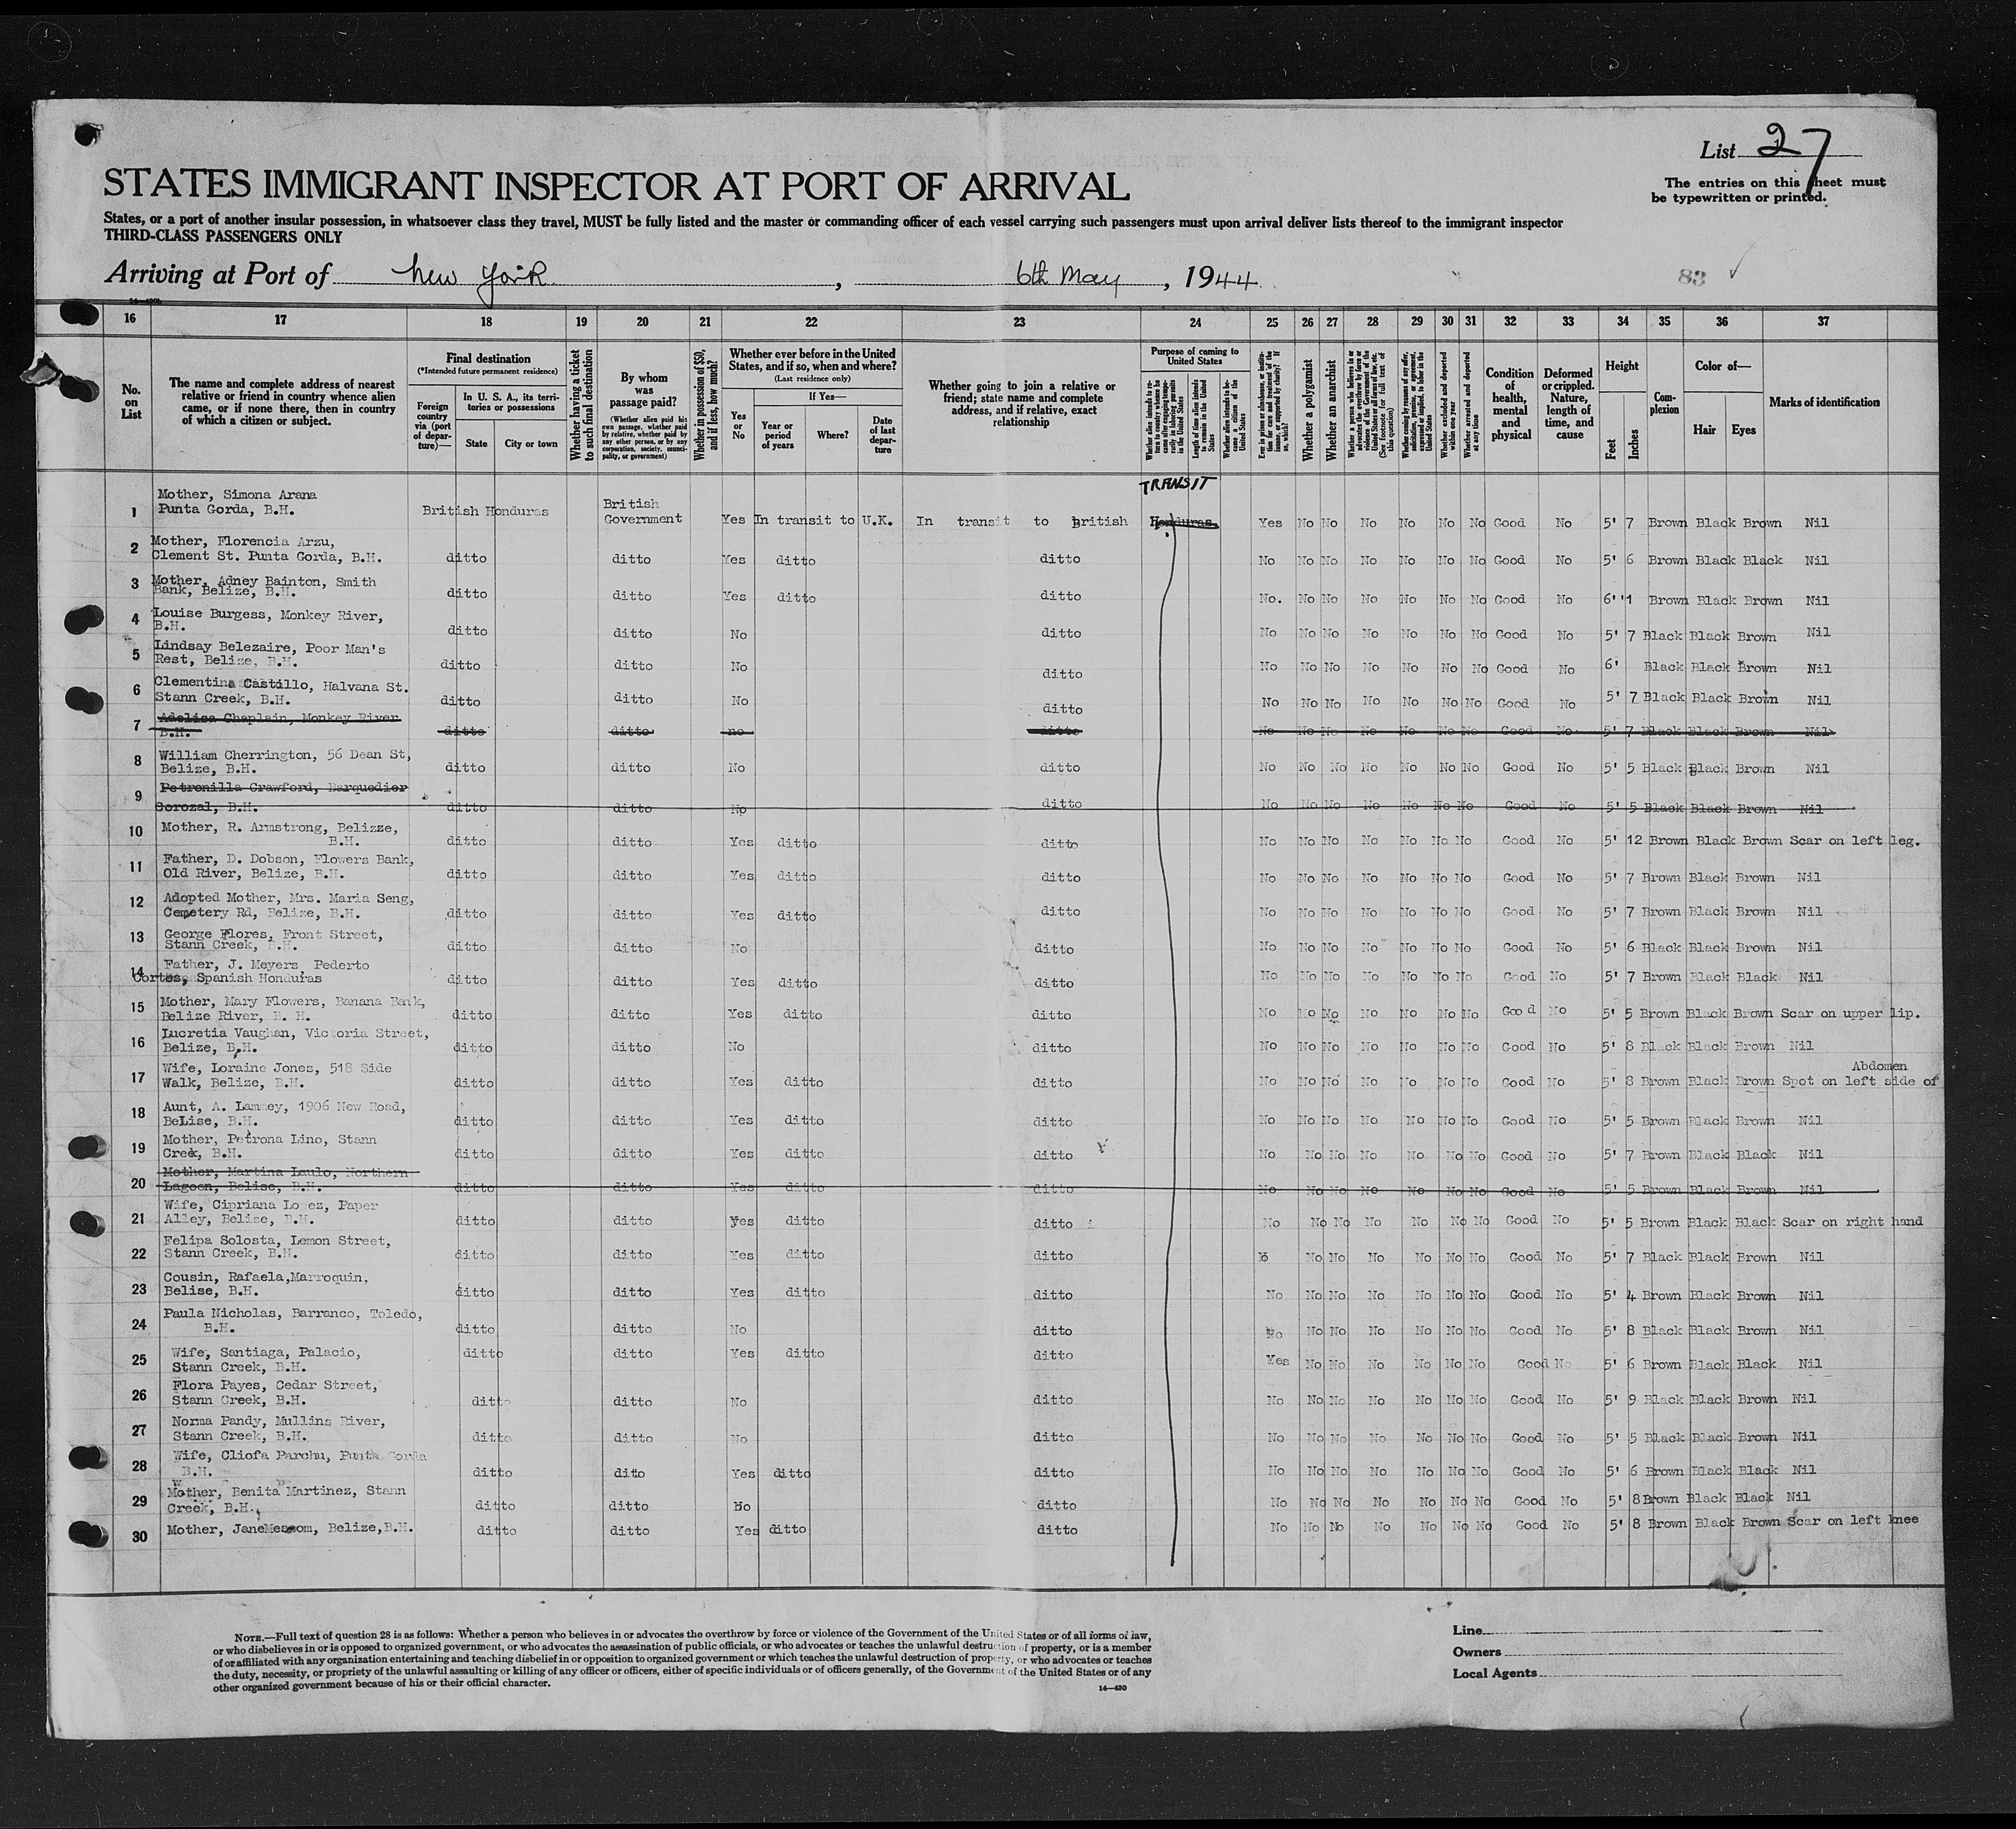 List 27
STATES IMMIGRANT INSPECTOR AT PORT OF ARRIVAL
The entries on this sheet must
be typewritten or printed.
States, or a port of another insular possession, in whatsoever class they travel, MUST be fully listed and the master or commanding officer of each vessel carrying such passengers must upon arrival deliver lists thereof to the immigrant inspector
THIRD-CLASS PASSENGERS ONLY
Arriving at Port of New York, 6th May, 1944
83
16 17 18 19 20 21 22 23 24 25 26 27 28 29 30 31 32 33 34 35 36 37
No. on List
The name and complete address of nearest relative or friend in country whence alien came, or if none there, then in country of which a citizen or subject.
Final destination
(*Intended future permanent residence)
Foreign country via (port of departure)—
In U. S. A., its territories or possessions
State
City or town
Whether having a ticket to such final destination
By whom was passage paid?
(Whether alien paid his own passage, whether paid by relative, whether paid by any other person, or by any corporation, society, municipality, or government)
Whether in possession of $50, and if less, how much?
Whether ever before in the United States, and if so, when and where?
(Last residence only)
Yes or No
If Yes—
Year or period of years
Where?
Date of last departure
Whether going to join a relative or friend; state name and complete address, and if relative, exact relationship
Purpose of coming to United States
Length of time alien intends to remain in the United States
Whether alien intends to become a citizen of the United States
Whether a polygamist
Whether an anarchist
(See footnote for full text of this question)
Whether excluded and deported within one year
Whether arrested and deported at any time
Condition of health, mental and physical
Deformed or crippled. Nature, length of time, and cause
Height
Feet
Inches
Complexion
Color of—
Hair
Eyes
Marks of identification
TRANSIT
1 Mother, Simona Arana
Punta Gorda, B.H. British Honduras British Government Yes In transit to U.K. In transit to British Honduras Yes No No No No No No Good No 5' 7 Brown Black Brown Nil
2 Mother, Florencia Arzu,
Clement St. Punta Gorda, B.H. ditto ditto Yes ditto ditto No No No No No No No Good No 5' 6 Brown Black Black Nil
3 Mother, Adney Bainton, Smith
Bank, Belize, B.H. ditto ditto Yes ditto ditto No. No No No No No No Good No 6' '1 Brown Black Brown Nil
4 Louise Burgess, Monkey River,
B.H. ditto ditto No ditto No No No No No No No Good No 5' 7 Black Black Brown Nil
5 Lindsay Belezaire, Poor Man's
Rest, Belize, B.H. ditto ditto No ditto No No No No No No No Good No 6' Black Black Brown Nil
6 Clementina Castillo, Halvana St.
Stann Creek, B.H. ditto ditto No ditto No No No No No No No Good No 5' 7 Black Black Brown Nil
7 Adolisa Chaplain, Monkey River
B.H. ditto ditto no ditto No No No No No No No Good No 5' 7 Black Black Brown Nil
8 William Cherrington, 56 Dean St,
Belize, B.H. ditto ditto No ditto No No No No No No No Good No 5' 5 Black Black Brown Nil
9 Petronilla Crawford, Barquedier
Sorozal, B.H. ditto ditto No ditto No No No No No No No Good No 5' 5 Black Black Brown Nil
10 Mother, R. Armstrong, Belizze,
B.H. ditto ditto Yes ditto ditto No No No No No No No Good No 5' 12 Brown Black Brown Scar on left leg.
11 Father, D. Dobson, Flowers Bank,
Old River, Belize, B.H. ditto ditto Yes ditto ditto No No No No No No No Good No 5' 7 Brown Black Brown Nil
12 Adopted Mother, Mrs. Maria Seng,
Cemetery Rd, Belize, B.H. ditto ditto Yes ditto ditto No No No No No No No Good No 5' 7 Brown Black Brown Nil
13 George Flores, Front Street,
Stann Creek, B.H. ditto ditto No ditto No No No No No No No Good No 5' 6 Black Black Brown Nil
14 Father, J. Meyers, Pederto
Cortes, Spanish Honduras ditto ditto Yes ditto ditto No No No No No No No Good No 5' 7 Brown Black Black Nil
15 Mother, Mary Flowers, Banana Bank,
Belize River, B. H. ditto ditto Yes ditto ditto No No No No No No No Good No 5' 5 Brown Black Brown Scar on upper lip.
16 Lucretia Vaughan, Victoria Street,
Belize, B.H. ditto ditto No ditto No No No No No No No Good No 5' 8 Black Black Brown Nil
17 Wife, Loraine Jones, 518 Side
Walk, Belize, B.H. ditto ditto Yes ditto ditto No No No No No No No Good No 5' 8 Brown Black Brown Spot on left side of Abdomen
18 Aunt, A. Lamney, 1906 New Road,
BeLise, B.H. ditto ditto Yes ditto ditto No No No No No No No Good No 5' 5 Brown Black Brown Nil
19 Mother, Petrona Lino, Stann
Creek, B.H. ditto ditto Yes ditto ditto No No No No No No No Good No 5' 7 Brown Black Black Nil
20 Mother, Martina Laulo, Northern
Lagoon, Belise, B.H. ditto ditto Yes ditto ditto No No No No No No No Good No 5' 5 Brown Black Brown Nil
21 Wife, Cipriana Lopez, Paper
Alley, Belise, B.H. ditto ditto Yes ditto ditto No No No No No No No Good No 5' 5 Brown Black Black Scar on right hand
22 Felipa Solosta, Lemon Street,
Stann Creek, B.H. ditto ditto Yes ditto ditto No No No No No No Good No 5' 7 Black Black Brown Nil
23 Cousin, Rafaela,Marroquin,
Belise, B.H. ditto ditto Yes ditto ditto No No No No No No No Good No 5' 4 Brown Black Brown Nil
24 Paula Nicholas, Barranco, Toledo,
B.H. ditto ditto No ditto No No No No No No No Good No 5' 8 Black Black Brown Nil
25 Wife, Santiaga, Palacio,
Stann Creek, B.H. ditto ditto Yes ditto ditto Yes No No No No No No Good No 5' 6 Brown Black Black Nil
26 Flora Payes, Cedar Street,
Stann Creek, B.H. ditto ditto No ditto No No No No No No No Good No 5' 9 Black Black Brown Nil
27 Norma Pandy, Mullins River,
Stann Creek, B.H. ditto ditto No ditto No No No No No No No Good No 5' 5 Black Black Brown Nil
28 Wife, Cliofa Parchu, Punta Gorda
B.H. ditto ditto Yes ditto ditto No No No No No No No Good No 5' 6 Brown Black Black Nil
29 Mother, Benita Martinez, Stann
Creek, B.H. ditto ditto No ditto No No No No No No No Good No 5' 8 Brown Black Black Nil
30 Mother, Jane Messom, Belize,B.H. ditto ditto Yes ditto ditto No No No No No No No Good No 5' 8 Brown Black Brown Scar on left knee
NOTE.—Full text of question 28 is as follows: Whether a person who believes in or advocates the overthrow by force or violence of the Government of the United States or of all forms of law,
or who disbelieves in or is opposed to organized government, or who advocates the assassination of public officials, or who advocates or teaches the unlawful destruction of property, or is a member
of or affiliated with any organization entertaining and teaching disbelief in or opposition to organized government or which teaches the unlawful destruction of property, or who advocates or teaches
the duty, necessity, or propriety of the unlawful assaulting or killing of any officer or officers, either of specific individuals or of officers generally, of the Government of the United States or of any
other organized government because of his or their official character.
14—430
Line
Owners
Local Agents